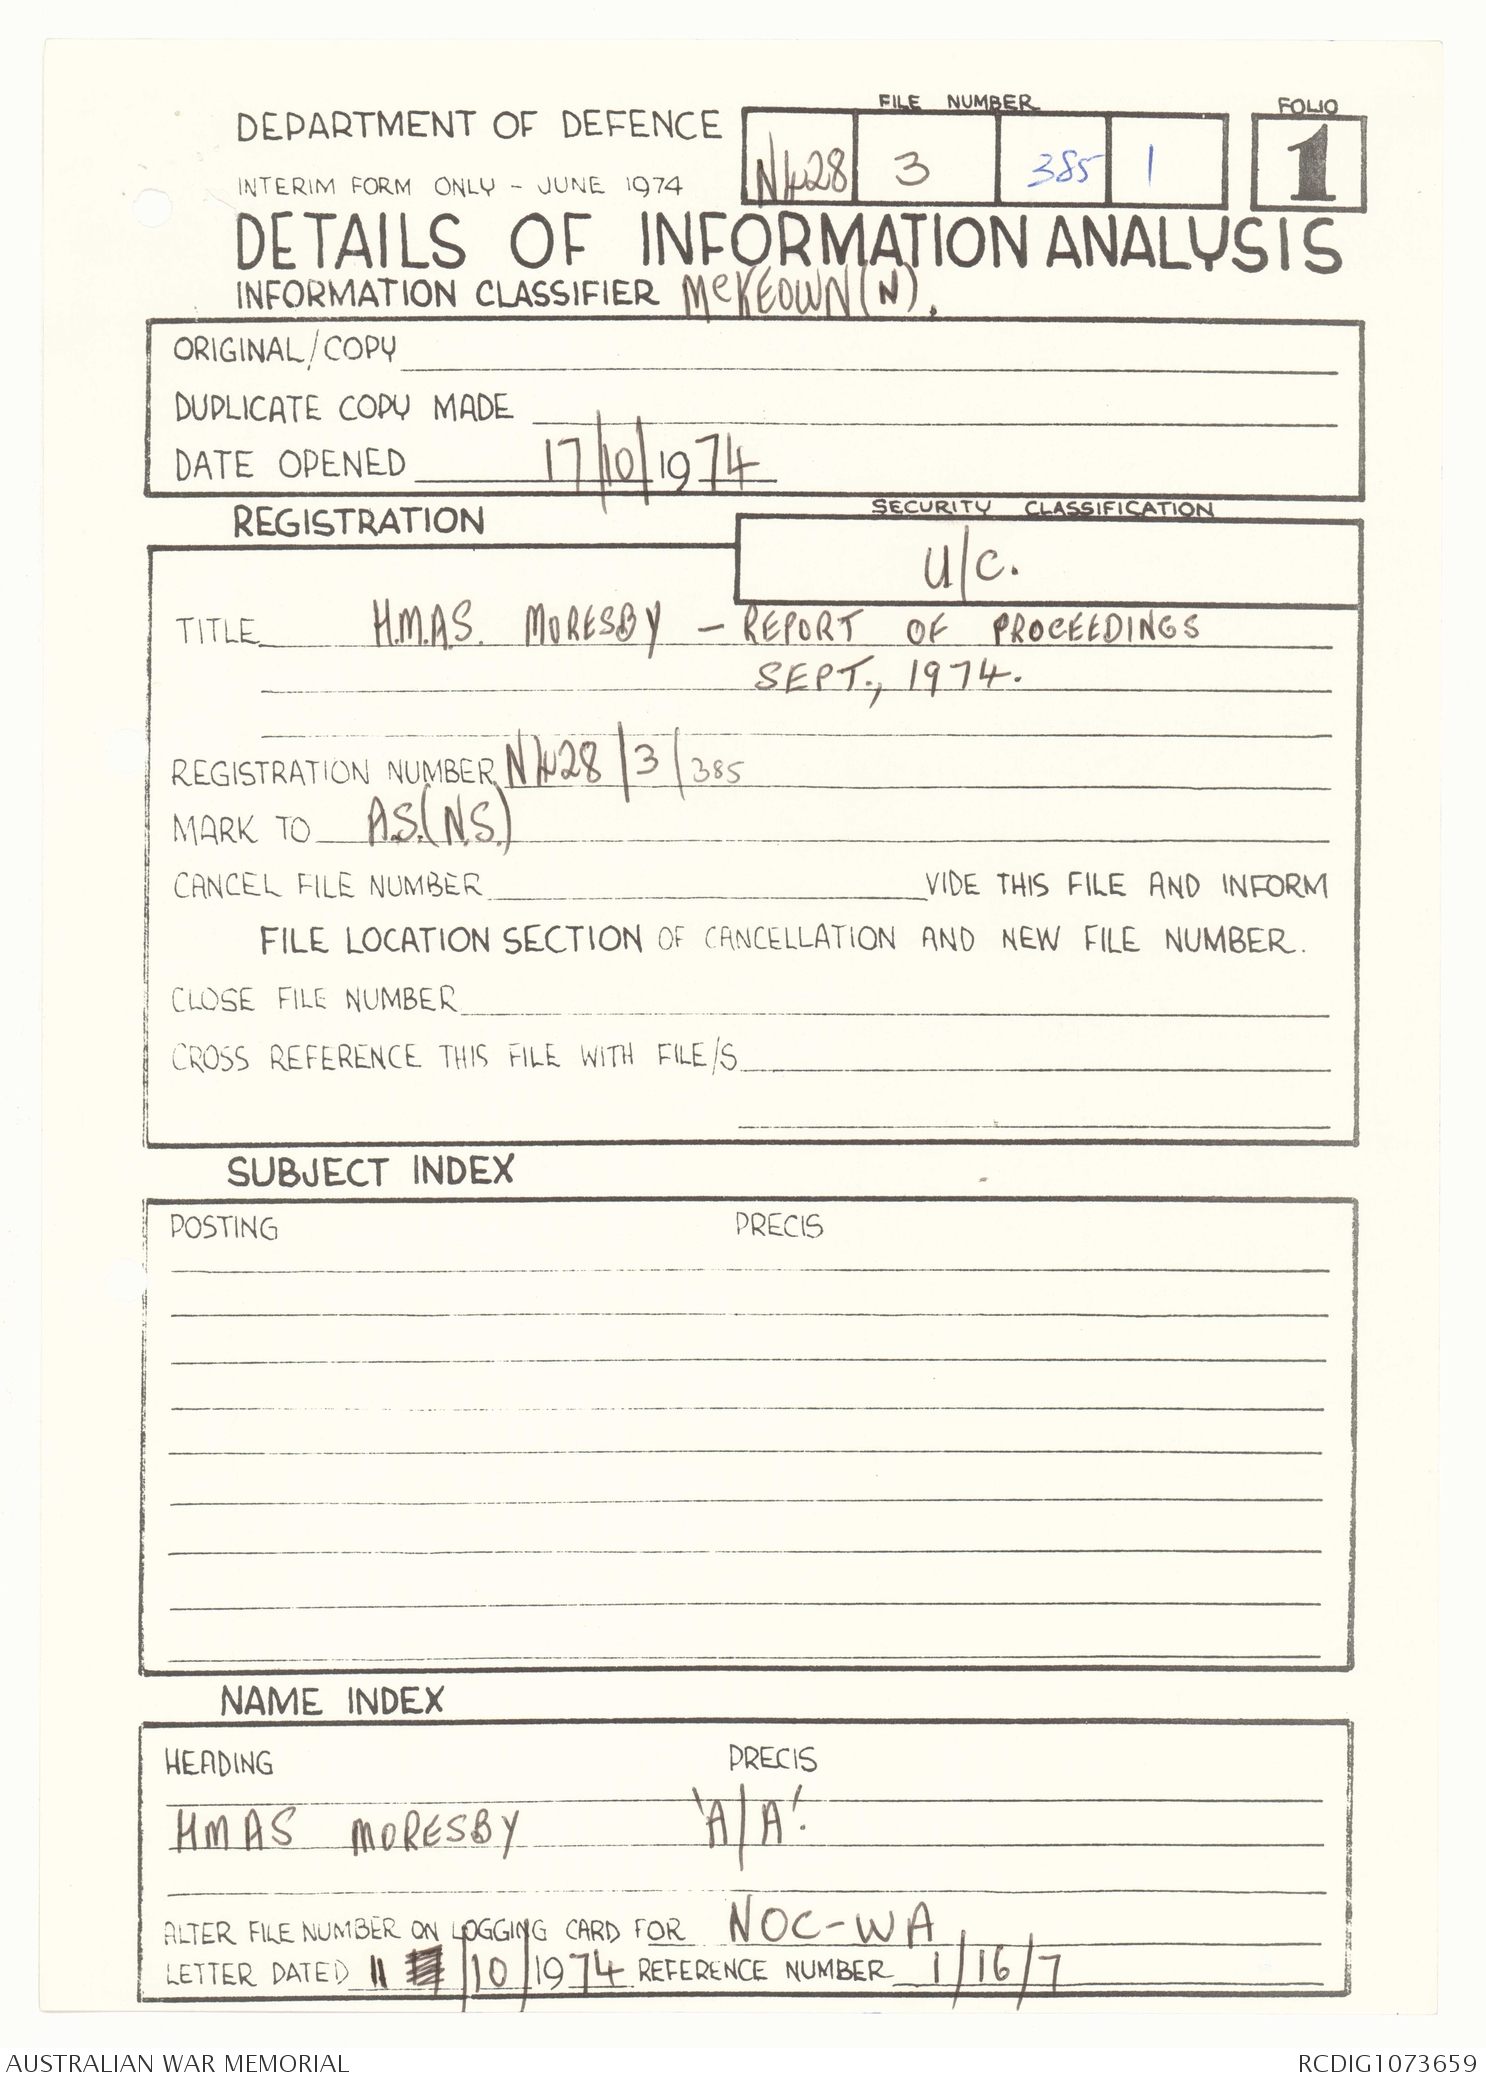 FILE NUMBER
FOLIO
DEPARTMENT OF DEFENCE
N428 3 385 1
1
INTERIM FORM ONLY - JUNE 1974
DETAILS OF INFORMATION ANALYSIS
INFORMATION CLASSIFIER McKEOWN (N).
ORIGINAL/COPY
DUPLICATE COPY MADE
DATE OPENED 17/10/1974
REGISTRATION
SECURITY CLASSIFICATION
U/C.
TITLE H.M.A.S. MORESBY - REPORT OF PROCEEDINGS
SEPT., 1974.
REGISTRATION NUMBER N428/3/385
MARK TO A.S.(N.S.)
CANCEL FILE NUMBER VIDE THIS FILE AND INFORM
FILE LOCATION SECTION OF CANCELLATION AND NEW FILE NUMBER.
CLOSE FILE NUMBER
CROSS REFERENCE THIS FILE WITH FILE/S
SUBJECT INDEX
POSTING PRECIS
NAME INDEX
HEADING PRECIS
HMAS MORESBY 'A/A'.
ALTER FILE NUMBER ON LOGGING CARD FOR NOC-WA
LETTER DATED 11 /10/1974 REFERENCE NUMBER 1/16/7
AUSTRALIAN WAR MEMORIAL
RCDIG1073659